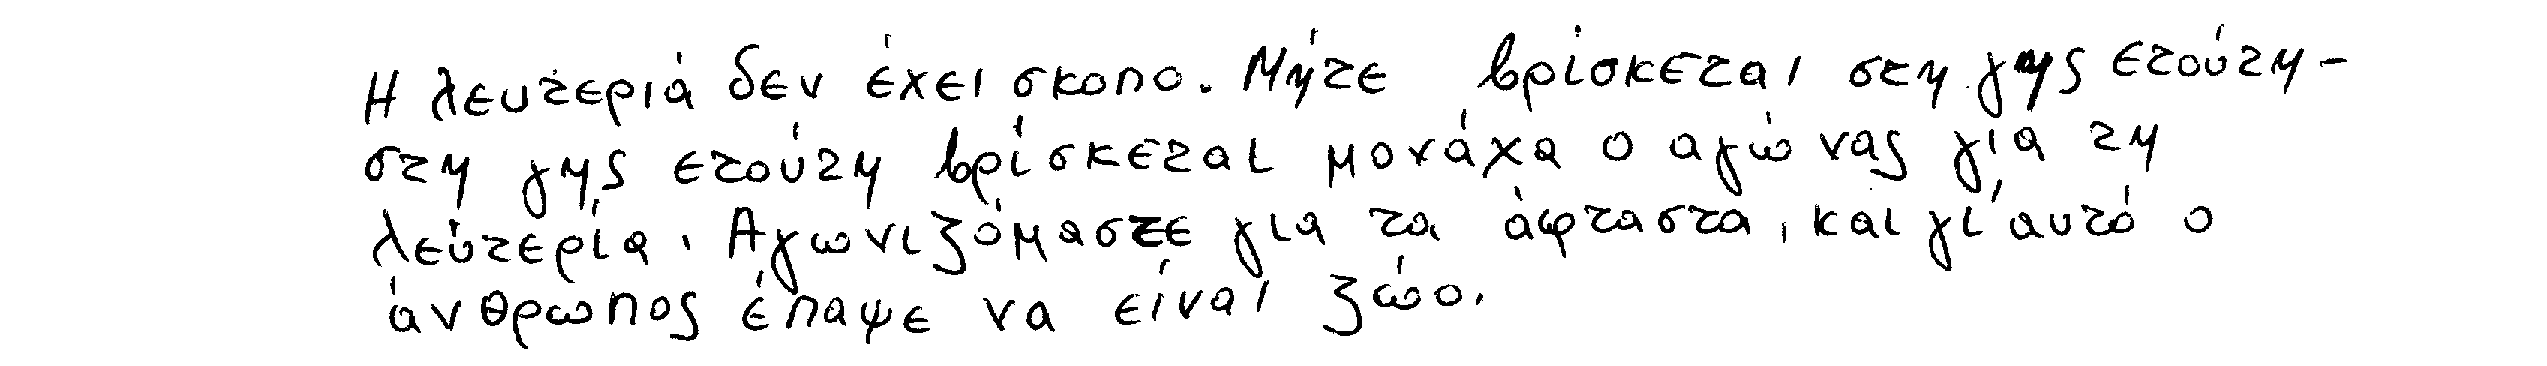 Η λευτεριά δεν έχει σκοπο. Μήτε βρίσκεται στη γης ετούτη-
στη γης ετούτη βρίσκεται μονάχα ο αγώνας για τη
λεύτερία. Αγωνιζόμαστε για τα άφταστα, και γι'αυτό ο
άνθρωπος έπαψε να είναι ζώο.